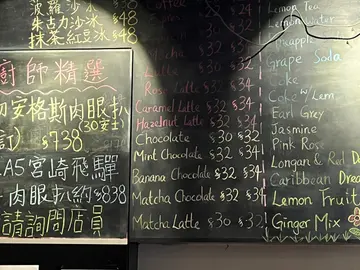 菠蘿沙冰 $48
朱古力沙冰 $48
抹茶紅豆冰 $48
廚師精選
切安格斯肉眼扒
(30安士)
$738
A5宮崎飛驒
牛肉眼扒約$838
請詢問店員
Mocha $32 $34
Latte
Rose Latte $32 $34
Caramel Latte $32 $34
Hazelnut Latte $32 $34
Chocolate $30 $32
Mint Chocolate $32 $34
Banana Chocolate $32 $34
Matcha Chocolate $32 $34
Matcha Latte $30 $32
Lemon Tea
Lemon Water
Pineapple
Grape Soda
Coke
Coke w/ Lem
Earl Grey
Jasmine
Pink Rose
Longan & Red D
Caribbean Drea
Lemon Fruit
Ginger Mix